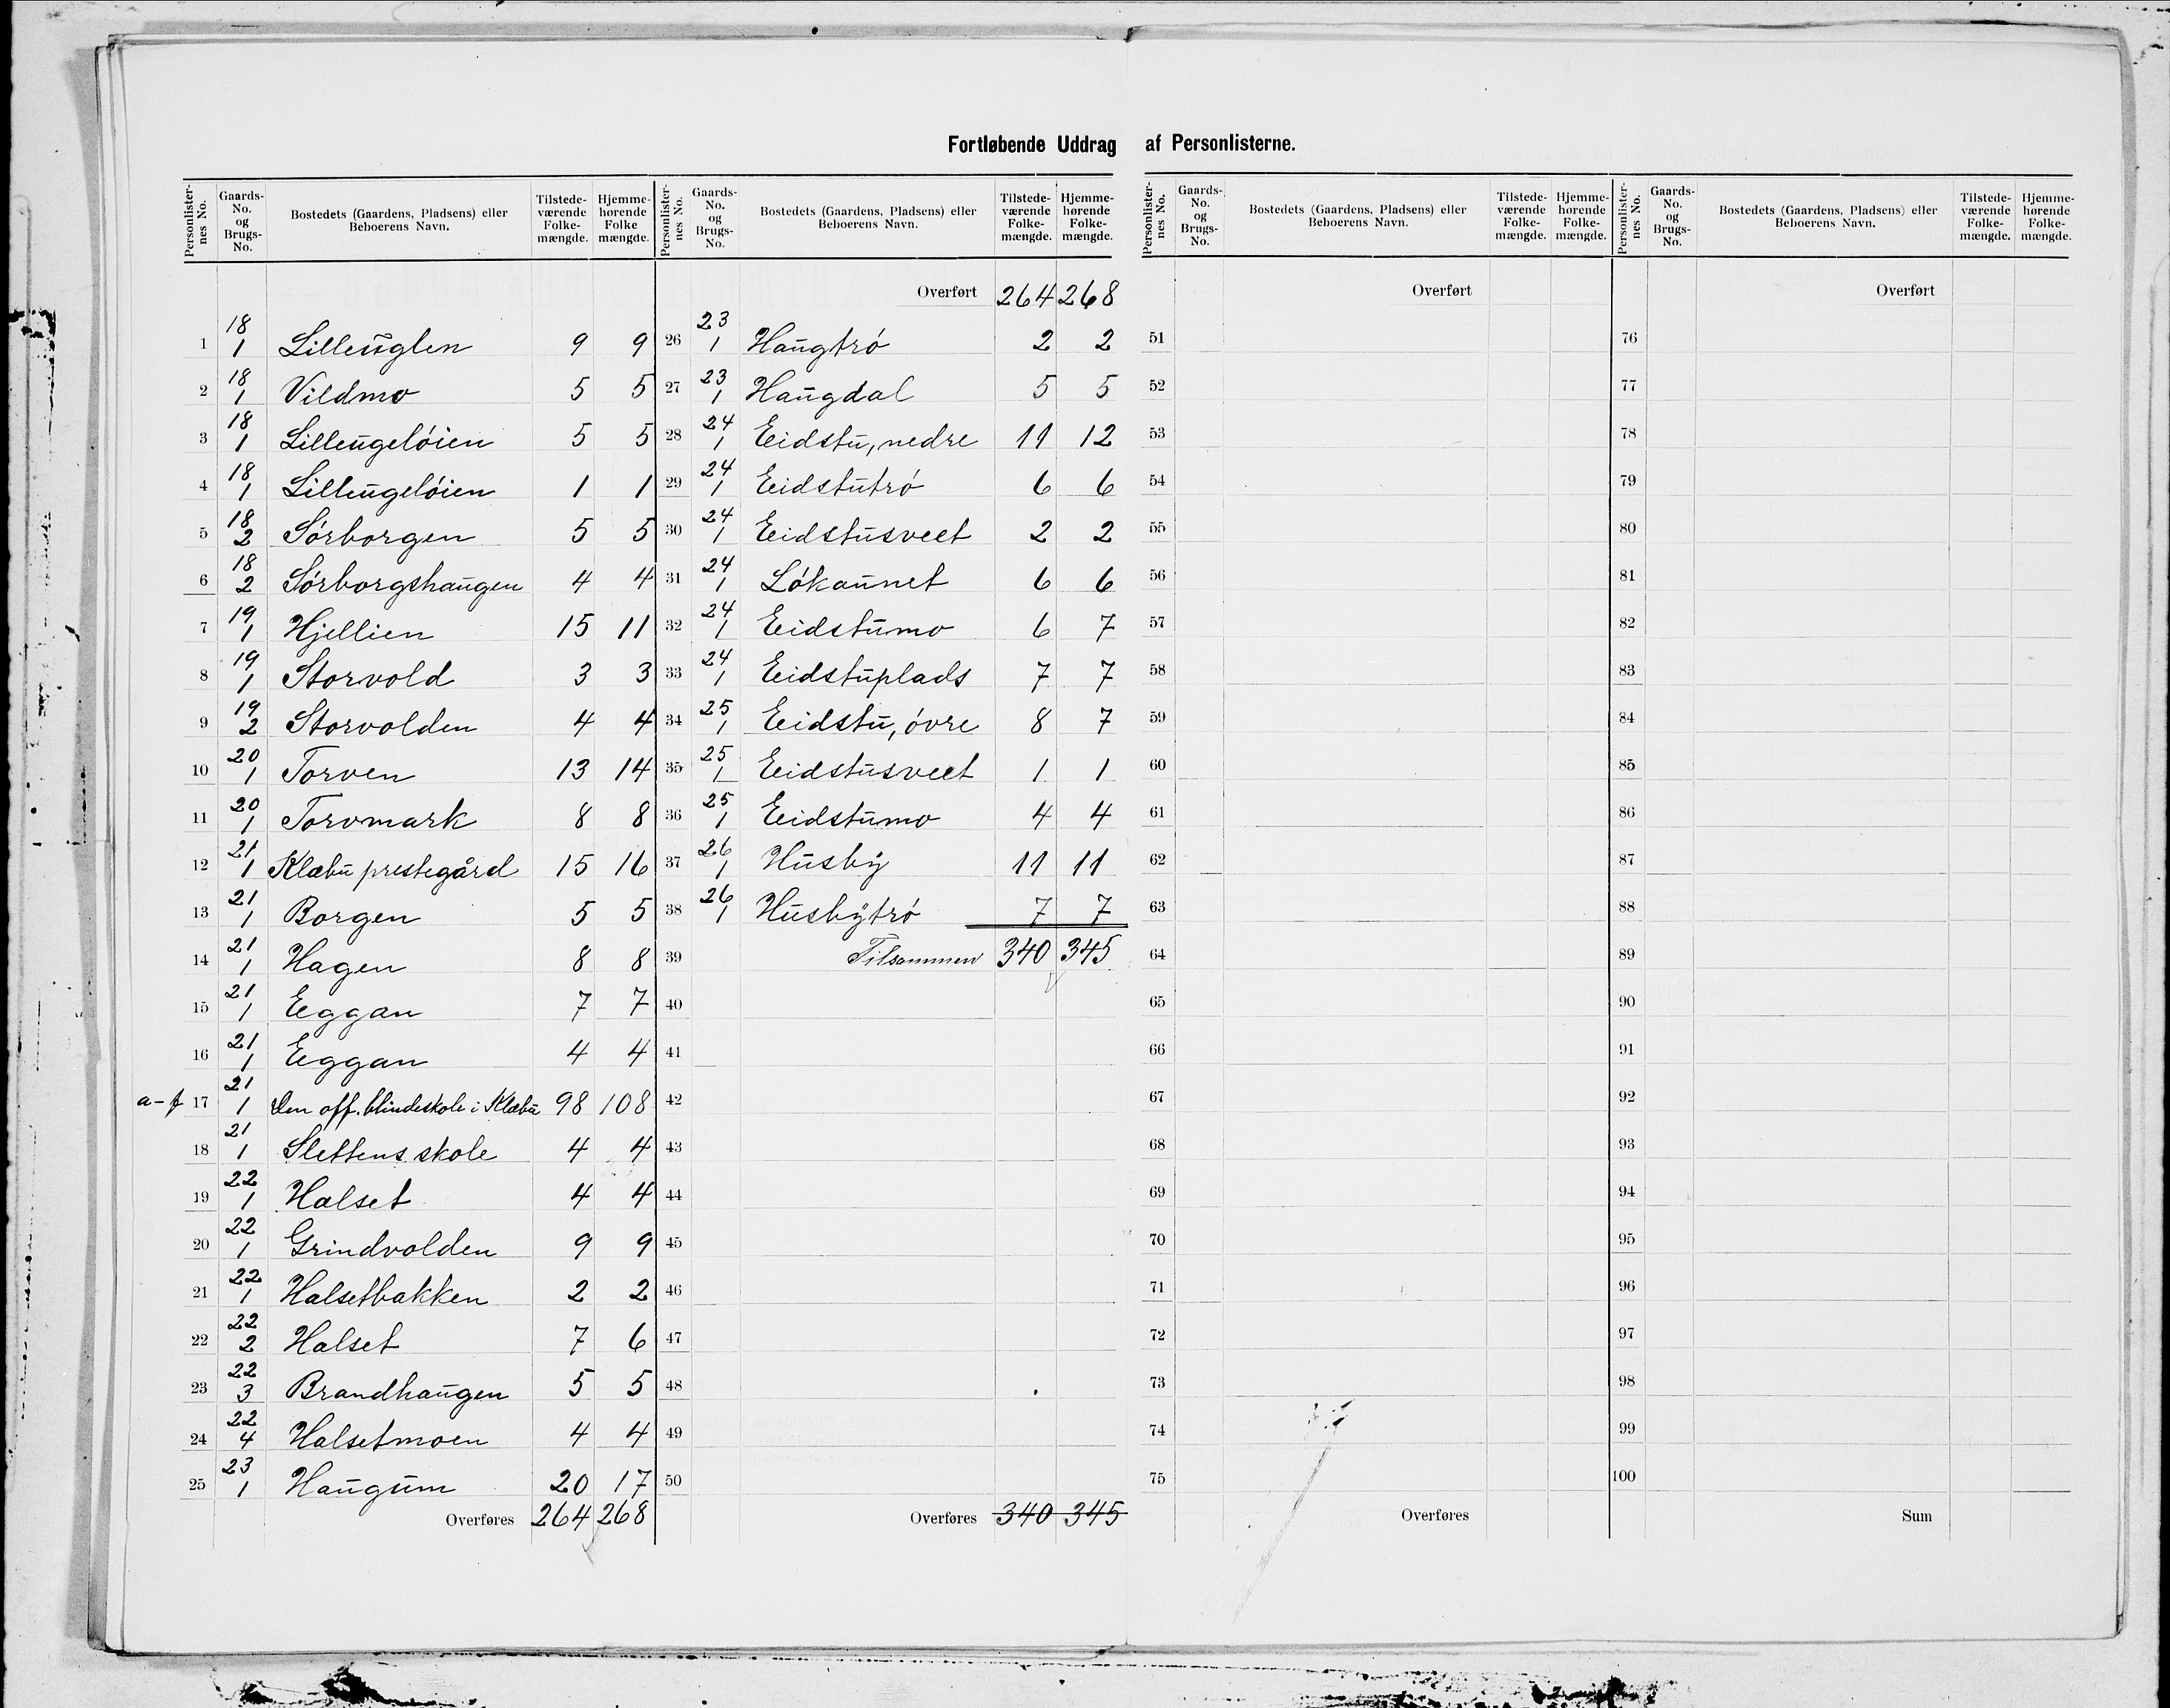 Fortløbende Uddrag af Personlisterne.
Personlisternes No. | Gaards-No. og Brugs-No. | Bostedets (Gaardens, Pladsens) eller Beboerens Navn. | Tilstedeværende Folkemængde. | Hjemmehørende Folkemængde.
1 18/1 Lilleuglen 9 9
2 18/1 Vildmo 5 5
3 18/1 Lilleugeløien 5 5
4 18/1 Lilleugeløien 1 1
5 18/2 Sørborgen 5 5
6 18/2 Sørborgshaugen 4 4
7 19/1 Hjellien 15 11
8 19/1 Storvold 3 3
9 19/2 Storvolden 4 4
10 20/1 Torven 13 14
11 20/1 Torvmark 8 8
12 21/1 Klæbu prestegård 15 16
13 21/1 Borgen 5 5
14 21/1 Hagen 8 8
15 21/1 Eggan 7 7
16 21/1 Eggan 4 4
a-f 17 21/1 Den off. blindeskole i Klæbu 98 108
18 21/1 Slettens skole 4 4
19 22/1 Halset 4 4
20 22/1 Grindvolden 9 9
21 22/1 Halsetbakken 2 2
22 22/2 Halset 7 6
23 22/3 Brandhaugen 5 5
24 22/4 Halsetmoen 4 4
25 23/1 Haugum 20 17
Overføres 264 268
Personlisternes No. | Gaards-No. og Brugs-No. | Bostedets (Gaardens, Pladsens) eller Beboerens Navn. | Tilstedeværende Folkemængde. | Hjemmehørende Folkemængde.
Overført 264 268
26 23/1 Haugtrø 2 2
27 23/1 Haugdal 5 5
28 24/1 Eidstu, nedre 11 12
29 24/1 Eidstutrø 6 6
30 24/1 Eidstusveet 2 2
31 24/1 Løkaunet 6 6
32 24/1 Eidstumo 6 7
33 24/1 Eidstuplads 7 7
34 25/1 Eidstu, øvre 8 7
35 25/1 Eidstusveet 1 1
36 25/1 Eidstumo 4 4
37 26/1 Husby 11 11
38 26/1 Husbytrø 7 7
39 Tilsammen 340 345
40
41
42
43
44
45
46
47
48
49
50
Overføres 340 345
Personlisternes No. | Gaards-No. og Brugs-No. | Bostedets (Gaardens, Pladsens) eller Beboerens Navn. | Tilstedeværende Folkemængde. | Hjemmehørende Folkemængde.
Overført
51
52
53
54
55
56
57
58
59
60
61
62
63
64
65
66
67
68
69
70
71
72
73
74
75
Overføres
Personlisternes No. | Gaards-No. og Brugs-No. | Bostedets (Gaardens, Pladsens) eller Beboerens Navn. | Tilstedeværende Folkemængde. | Hjemmehørende Folkemængde.
Overført
76
77
78
79
80
81
82
83
84
85
86
87
88
89
90
91
92
93
94
95
96
97
98
99
100
Sum